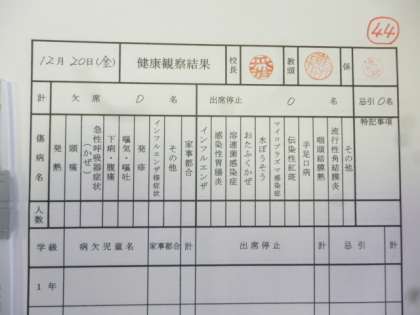 44
12月20日(金) 健康観察結果 校長 教頭 係
計 欠席 0名 出席停止 0名 忌引0名
傷病名 発熱 頭痛 急性呼吸器症状(かぜ) 下痢・腹痛 嘔気・嘔吐 発疹 インフルエンザ様症状 その他 家事都合 インフルエンザ 感染性胃腸炎 溶連菌感染症 おたふくかぜ 水ぼうそう マイコプラズマ感染症 伝染性紅斑 手足口病 咽頭結膜熱 流行性角結膜炎 その他 特記事項
人数
学級 病欠児童名 家事都合 計 出席停止 計 忌引 計
1年